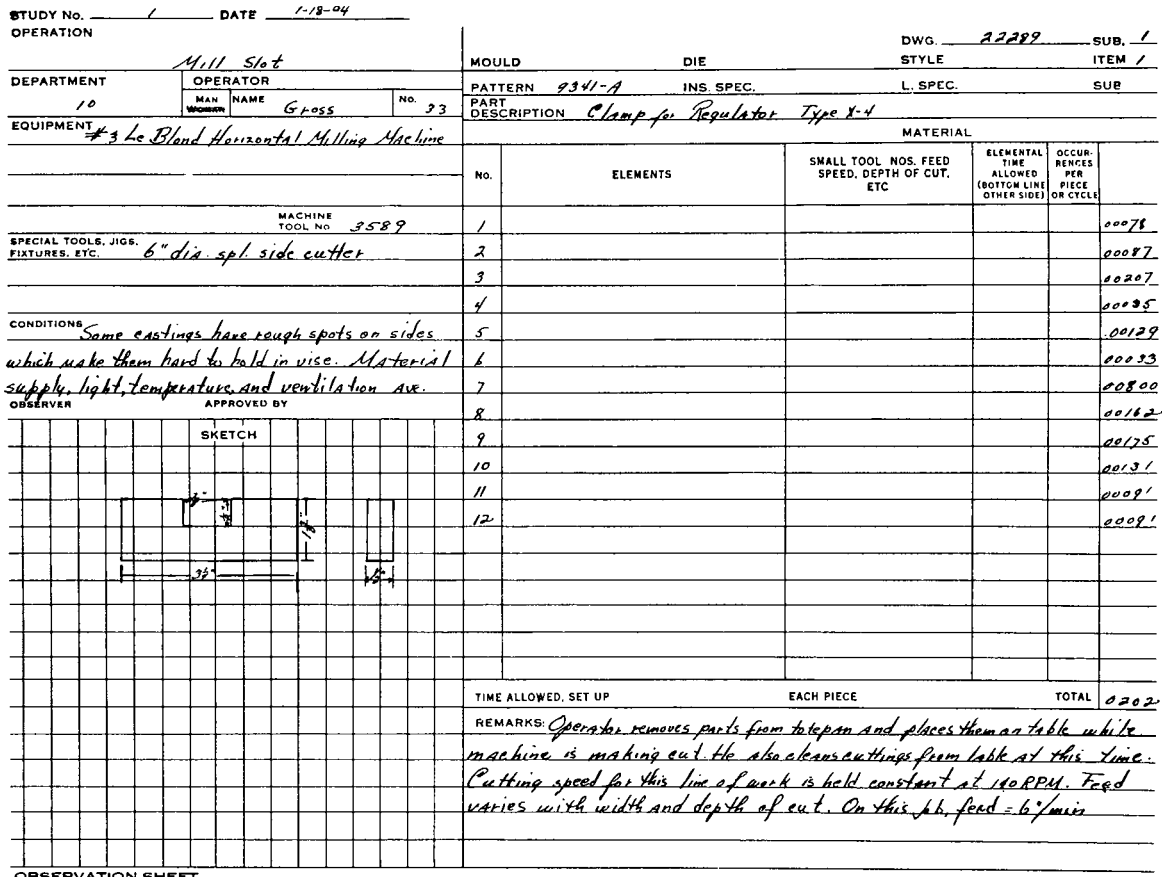 STUDY No. 1 DATE 1-18-04
OPERATION
Mill Slot
DEPARTMENT 10
OPERATOR
MAN WOMAN NAME Gross No. 33
EQUIPMENT #3 Le Blond Horizontal Milling Machine
MACHINE TOOL No 3589
SPECIAL TOOLS, JIGS, FIXTURES, ETC. 6" dia. spl. side cutter
CONDITIONS Some castings have rough spots on sides
which make them hard to hold in vise. Material
supply, light, temperature, and ventilation Ave.
OBSERVER APPROVED BY
SKETCH
3½"
½"
DWG. 22289 SUB. 1
MOULD DIE STYLE ITEM 1
PATTERN 9341-A INS. SPEC. L. SPEC. SUB
PART DESCRIPTION Clamp for Regulator Type X-4
MATERIAL
No. ELEMENTS SMALL TOOL NOS. FEED SPEED, DEPTH OF CUT, ETC ELEMENTAL TIME ALLOWED (BOTTOM LINE OTHER SIDE) OCCUR-RENCES PER PIECE OR CYCLE
1 00078
2 00087
3 00207
4 00035
5 .00129
6 00033
7 00800
8 00162
9 00175
10 00131
11 00091
12 00091
TIME ALLOWED, SET UP EACH PIECE TOTAL 0202
REMARKS: Operator removes parts from totepan and places them on table while
machine is making cut. He also cleans cuttings from table at this time.
Cutting speed for this line of work is held constant at 190 RPM. Feed
varies with width and depth of cut. On this job, feed = 6"/min
OBSERVATION SHEET